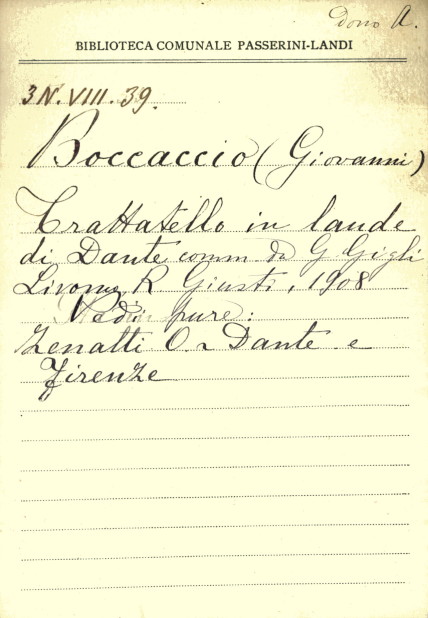 dono A.
BIBLIOTECA COMUNALE PASSERINI-LANDI
3N.VIII.39.
Boccaccio (Giovanni)
Trattatello in laude
di Dante comm da G Gigli
Livorno, R Giusti, 1908
Vedi pure:
Zenatti O. - Dante e
Firenze